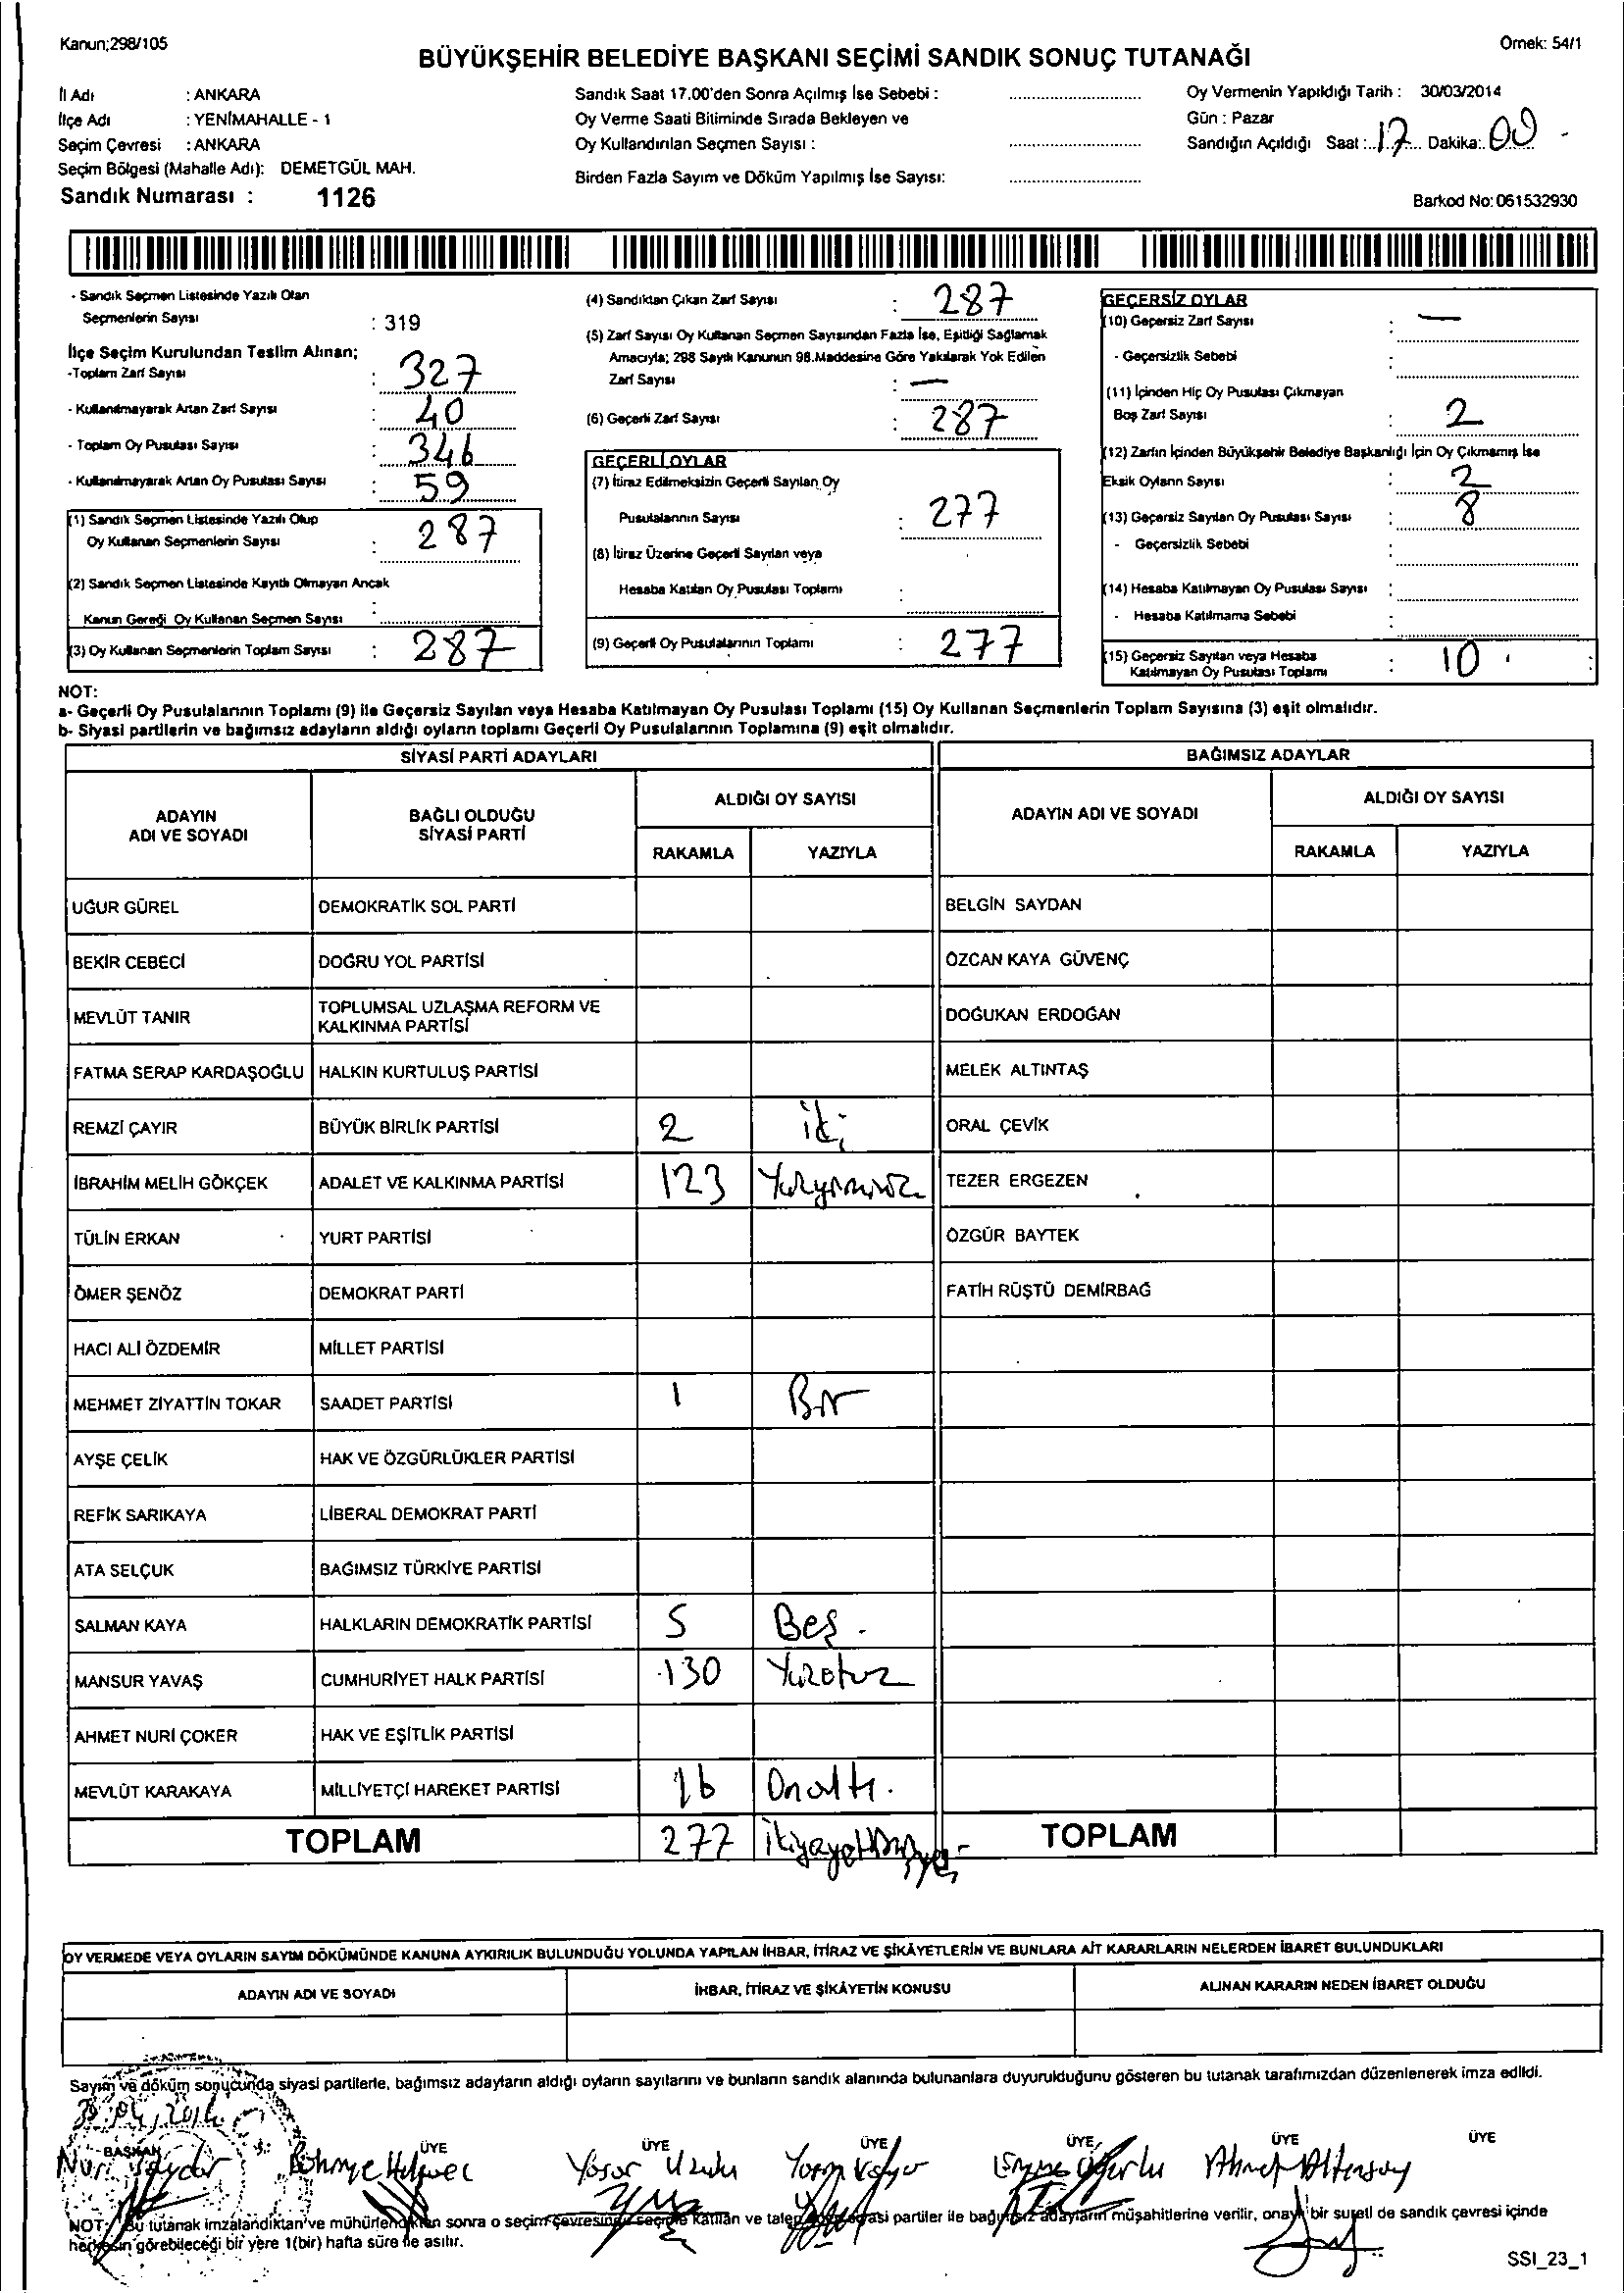 Kanun;298/105
Örnek: 54/1
BÜYÜKŞEHİR BELEDİYE BAŞKANI SEÇİMİ SANDIK SONUÇ TUTANAĞI
İl Adı : ANKARA
İlçe Adı : YENİMAHALLE - 1
Seçim Çevresi : ANKARA
Seçim Bölgesi (Mahalle Adı): DEMETGÜL MAH.
Sandık Numarası : 1126
Sandık Saat 17.00'den Sonra Açılmış İse Sebebi :
Oy Verme Saati Bitiminde Sırada Bekleyen ve
Oy Kullandırılan Seçmen Sayısı :
Birden Fazla Sayım ve Döküm Yapılmış İse Sayısı:
Oy Vermenin Yapıldığı Tarih : 30/03/2014
Gün : Pazar
Sandığın Açıldığı Saat : 17 Dakika: 00
Barkod No: 061532930
- Sandık Seçmen Listesinde Yazılı Olan
Seçmenlerin Sayısı : 319
İlçe Seçim Kurulundan Teslim Alınan;
-Toplam Zarf Sayısı : 327
- Kullanılmayarak Artan Zarf Sayısı : 40
- Toplam Oy Pusulası Sayısı : 346
- Kullanılmayarak Artan Oy Pusulası Sayısı : 59
(1) Sandık Seçmen Listesinde Yazılı Olup
Oy Kullanan Seçmenlerin Sayısı : 287
(2) Sandık Seçmen Listesinde Kayıtlı Olmayan Ancak
Kanun Gereği Oy Kullanan Seçmen Sayısı :
(3) Oy Kullanan Seçmenlerin Toplam Sayısı : 287
(4) Sandıktan Çıkan Zarf Sayısı : 287
(5) Zarf Sayısı Oy Kullanan Seçmen Sayısından Fazla İse, Eşitliği Sağlamak
Amacıyla; 298 Sayılı Kanunun 98.Maddesine Göre Yakılarak Yok Edilen
Zarf Sayısı : —
(6) Geçerli Zarf Sayısı : 287
GEÇERLİ OYLAR
(7) İtiraz Edilmeksizin Geçerli Sayılan Oy
Pusulalarının Sayısı : 277
(8) İtiraz Üzerine Geçerli Sayılan veya
Hesaba Katılan Oy Pusulası Toplamı :
(9) Geçerli Oy Pusulalarının Toplamı : 277
GEÇERSİZ OYLAR
(10) Geçersiz Zarf Sayısı : —
- Geçersizlik Sebebi :
(11) İçinden Hiç Oy Pusulası Çıkmayan
Boş Zarf Sayısı : 2
(12) Zarfın İçinden Büyükşehir Belediye Başkanlığı İçin Oy Çıkmamış İse
Eksik Oyların Sayısı : 2
(13) Geçersiz Sayılan Oy Pusulası Sayısı : 8
- Geçersizlik Sebebi :
(14) Hesaba Katılmayan Oy Pusulası Sayısı :
- Hesaba Katılmama Sebebi :
(15) Geçersiz Sayılan veya Hesaba
Katılmayan Oy Pusulası Toplamı : 10
NOT:
a- Geçerli Oy Pusulalarının Toplamı (9) ile Geçersiz Sayılan veya Hesaba Katılmayan Oy Pusulası Toplamı (15) Oy Kullanan Seçmenlerin Toplam Sayısına (3) eşit olmalıdır.
b- Siyasi partilerin ve bağımsız adayların aldığı oyların toplamı Geçerli Oy Pusulalarının Toplamına (9) eşit olmalıdır.
SİYASİ PARTİ ADAYLARI
BAĞIMSIZ ADAYLAR
ADAYIN ADI VE SOYADI
BAĞLI OLDUĞU SİYASİ PARTİ
ALDIĞI OY SAYISI
RAKAMLA YAZIYLA
ADAYIN ADI VE SOYADI
ALDIĞI OY SAYISI
RAKAMLA YAZIYLA
UĞUR GÜREL DEMOKRATİK SOL PARTİ BELGİN SAYDAN
BEKİR CEBECİ DOĞRU YOL PARTİSİ ÖZCAN KAYA GÜVENÇ
MEVLÜT TANIR TOPLUMSAL UZLAŞMA REFORM VE KALKINMA PARTİSİ DOĞUKAN ERDOĞAN
FATMA SERAP KARDAŞOĞLU HALKIN KURTULUŞ PARTİSİ MELEK ALTINTAŞ
REMZİ ÇAYIR BÜYÜK BİRLİK PARTİSİ 2 iki ORAL ÇEVİK
İBRAHİM MELİH GÖKÇEK ADALET VE KALKINMA PARTİSİ 123 TEZER ERGEZEN
TÜLİN ERKAN YURT PARTİSİ ÖZGÜR BAYTEK
ÖMER ŞENÖZ DEMOKRAT PARTİ FATİH RÜŞTÜ DEMİRBAĞ
HACI ALİ ÖZDEMİR MİLLET PARTİSİ
MEHMET ZİYATTİN TOKAR SAADET PARTİSİ 1 Bir
AYŞE ÇELİK HAK VE ÖZGÜRLÜKLER PARTİSİ
REFİK SARIKAYA LİBERAL DEMOKRAT PARTİ
ATA SELÇUK BAĞIMSIZ TÜRKİYE PARTİSİ
SALMAN KAYA HALKLARIN DEMOKRATİK PARTİSİ 5 Beş.
MANSUR YAVAŞ CUMHURİYET HALK PARTİSİ 130 Yüzotuz
AHMET NURİ ÇOKER HAK VE EŞİTLİK PARTİSİ
MEVLÜT KARAKAYA MİLLİYETÇİ HAREKET PARTİSİ 16 Onaltı.
TOPLAM 277 TOPLAM
OY VERMEDE VEYA OYLARIN SAYIM DÖKÜMÜNDE KANUNA AYKIRILIK BULUNDUĞU YOLUNDA YAPILAN İHBAR, İTİRAZ VE ŞİKÂYETLERİN VE BUNLARA AİT KARARLARIN NELERDEN İBARET BULUNDUKLARI
ADAYIN ADI VE SOYADI İHBAR, İTİRAZ VE ŞİKÂYETİN KONUSU ALINAN KARARIN NEDEN İBARET OLDUĞU
Sayım ve döküm sonucunda siyasi partilerle, bağımsız adayların aldığı oyların sayılarını ve bunların sandık alanında bulunanlara duyurulduğunu gösteren bu tutanak tarafımızdan düzenlenerek imza edildi.
BAŞKAN ÜYE ÜYE ÜYE ÜYE ÜYE ÜYE
Nuri Yaşar
NOT: Bu tutanak imzalandıktan ve mühürlendikten sonra o seçim çevresinde seçime katılan ve talep eden siyasi partiler ile bağımsız adayların müşahitlerine verilir, onaylı bir sureti de sandık çevresi içinde
herkesin görebileceği bir yere 1(bir) hafta süre ile asılır.
SSI_23_1